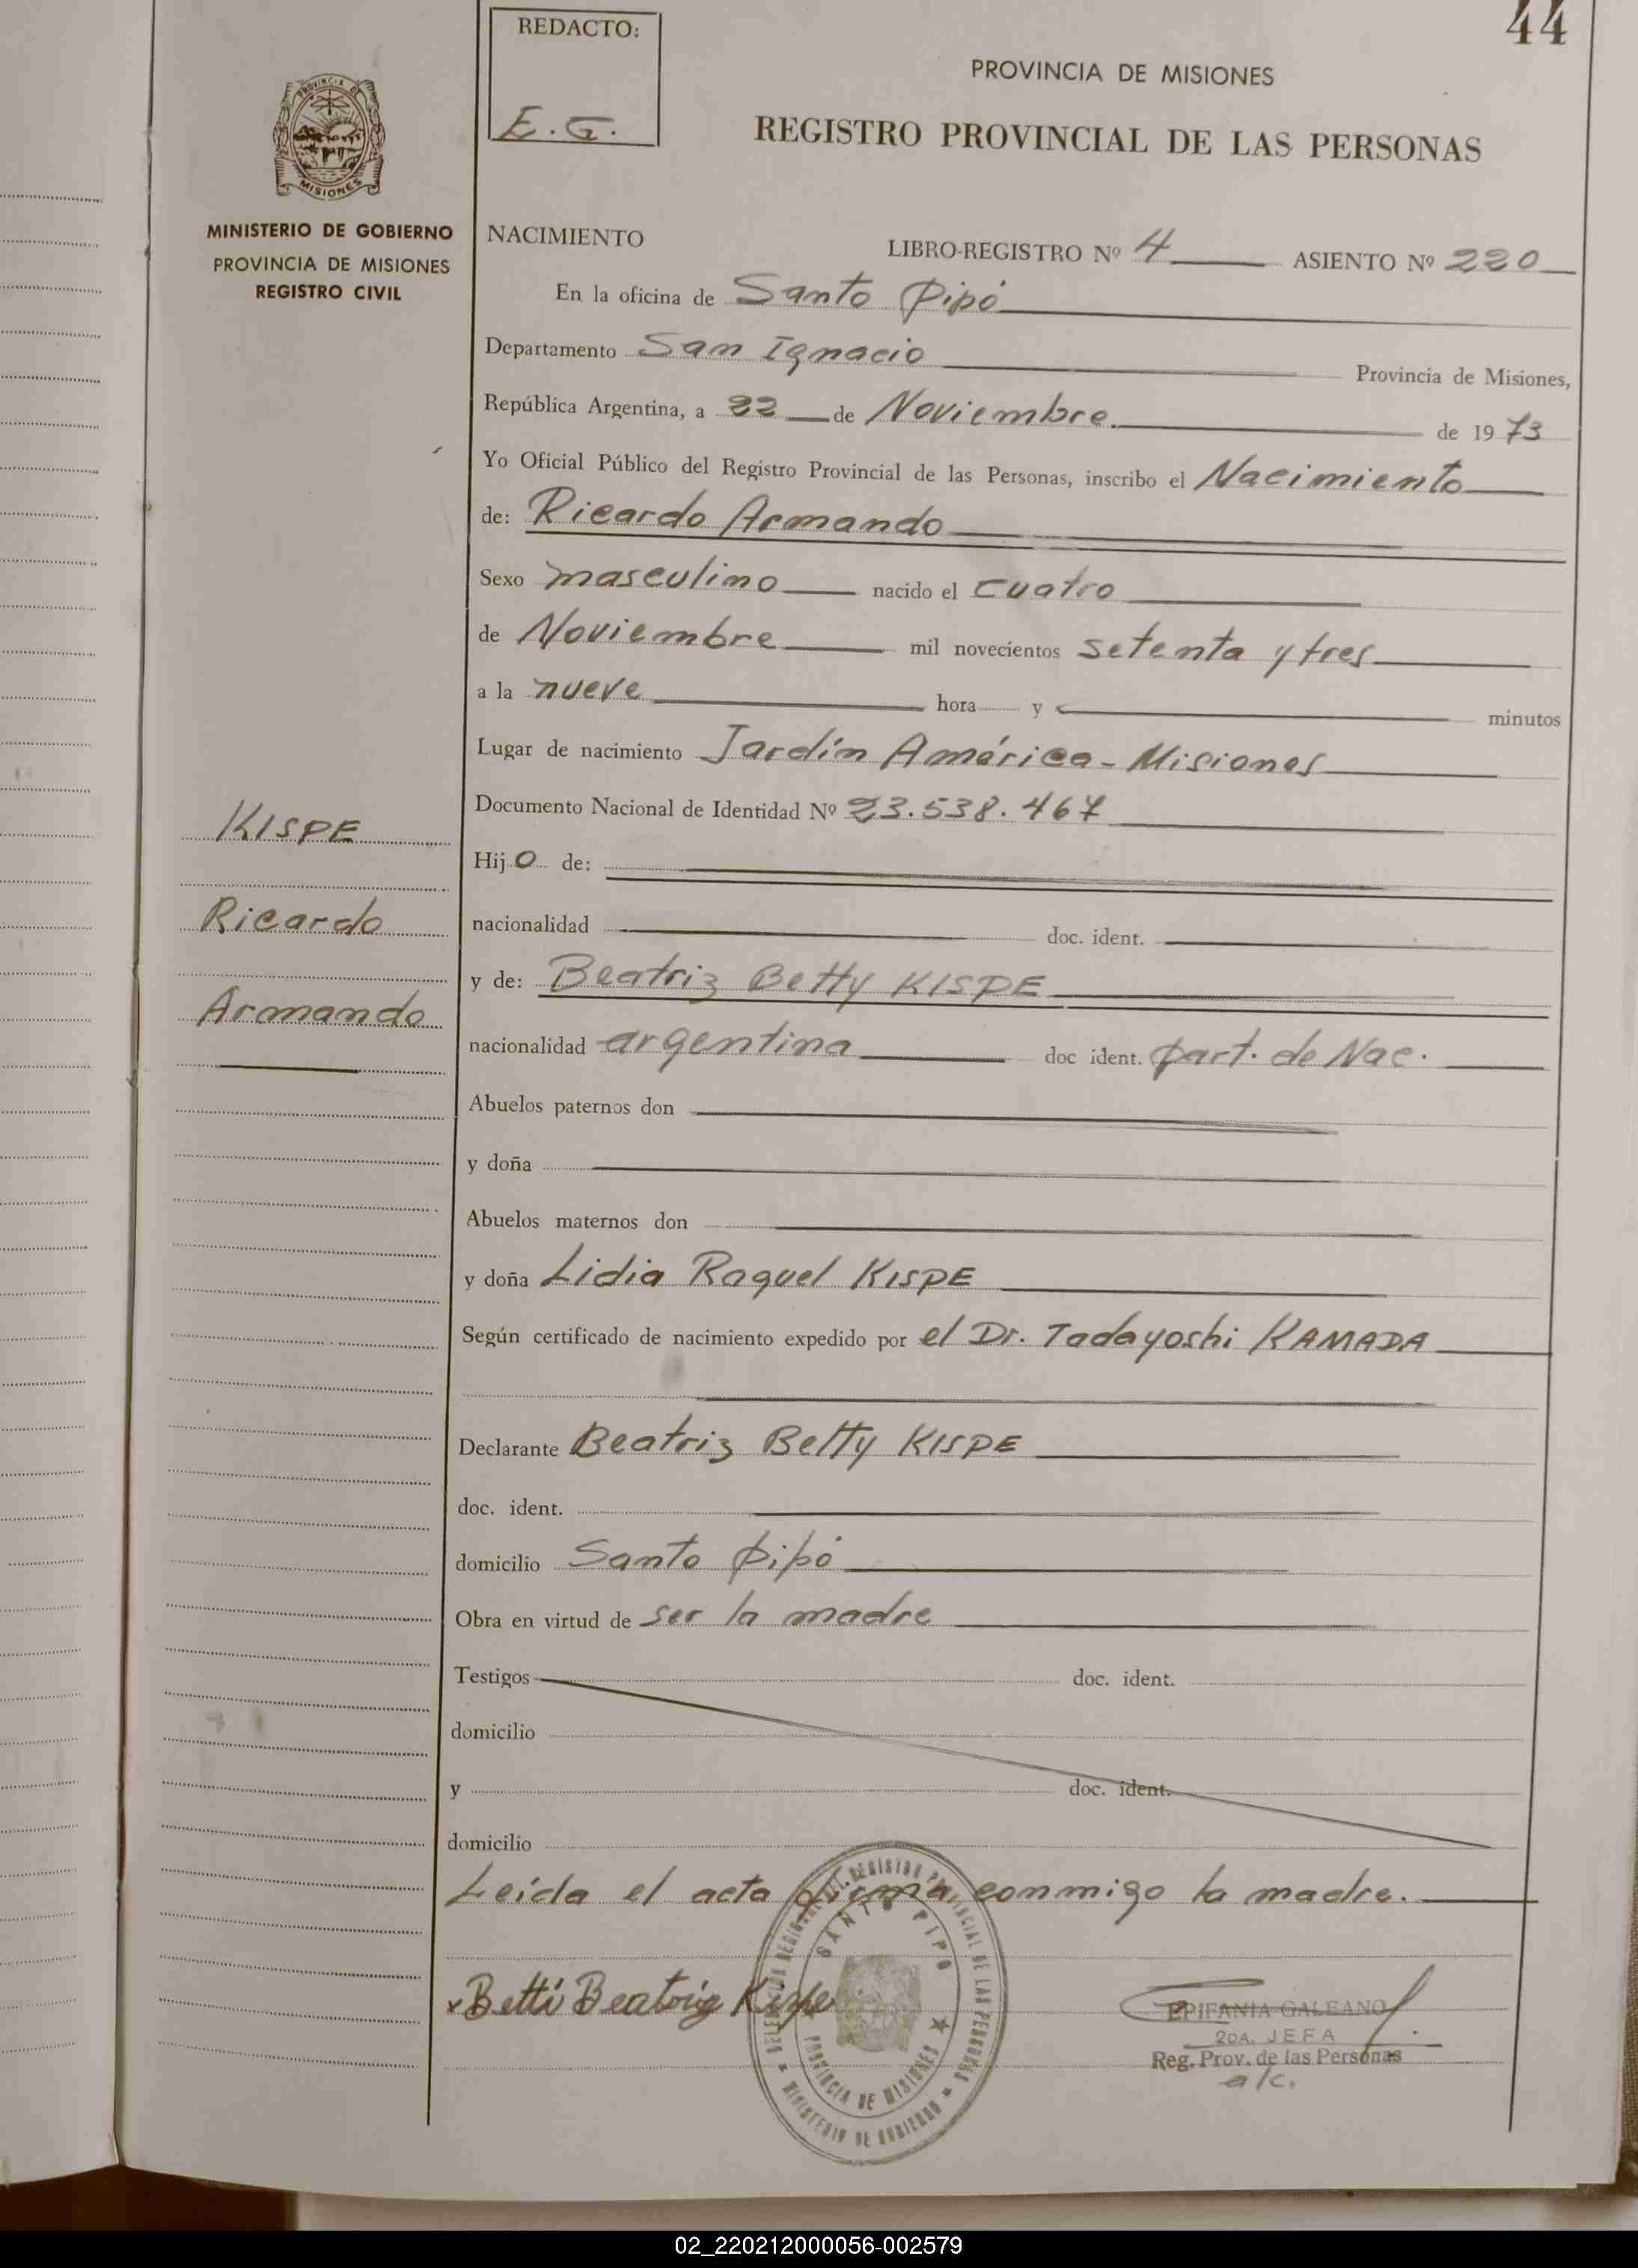 44
REDACTO:
E.G.
PROVINCIA DE MISIONES
REGISTRO PROVINCIAL DE LAS PERSONAS
PROVINCIA DE
MISIONES
MINISTERIO DE GOBIERNO
PROVINCIA DE MISIONES
REGISTRO CIVIL
NACIMIENTO LIBRO-REGISTRO Nº 4 ASIENTO Nº 220
En la oficina de Santo Pipó
Departamento San Ignacio Provincia de Misiones,
República Argentina, a 22 de Noviembre de 1973
Yo Oficial Público del Registro Provincial de las Personas, inscribo el Nacimiento
de: Ricardo Armando
Sexo masculino nacido el cuatro
de Noviembre mil novecientos setenta y tres
a la nueve hora y minutos
Lugar de nacimiento Jardín América - Misiones
Documento Nacional de Identidad Nº 23.538.467
Hijo de:
nacionalidad doc. ident.
y de: Beatriz Betty KISPE
nacionalidad argentina doc ident. part. de Nac.
Abuelos paternos don
y doña
Abuelos maternos don
y doña Lidia Raquel KISPE
Según certificado de nacimiento expedido por el Dr. Tadayoshi KAMADA
Declarante Beatriz Betty KISPE
doc. ident.
domicilio Santo Pipó
Obra en virtud de ser la madre
Testigos doc. ident.
domicilio
y doc. ident.
domicilio
Leída el acta firma conmigo la madre.
KISPE
Ricardo
Armando
x Betti Beatriz Kispe
REGISTRO PROVINCIAL DE LAS PERSONAS
SANTO PIPO
PROVINCIA DE MISIONES
MINISTERIO DE GOBIERNO
EPIFANIA GALEANO
2DA. JEFA
Reg. Prov. de las Personas
a/c.
02_220212000056-002579